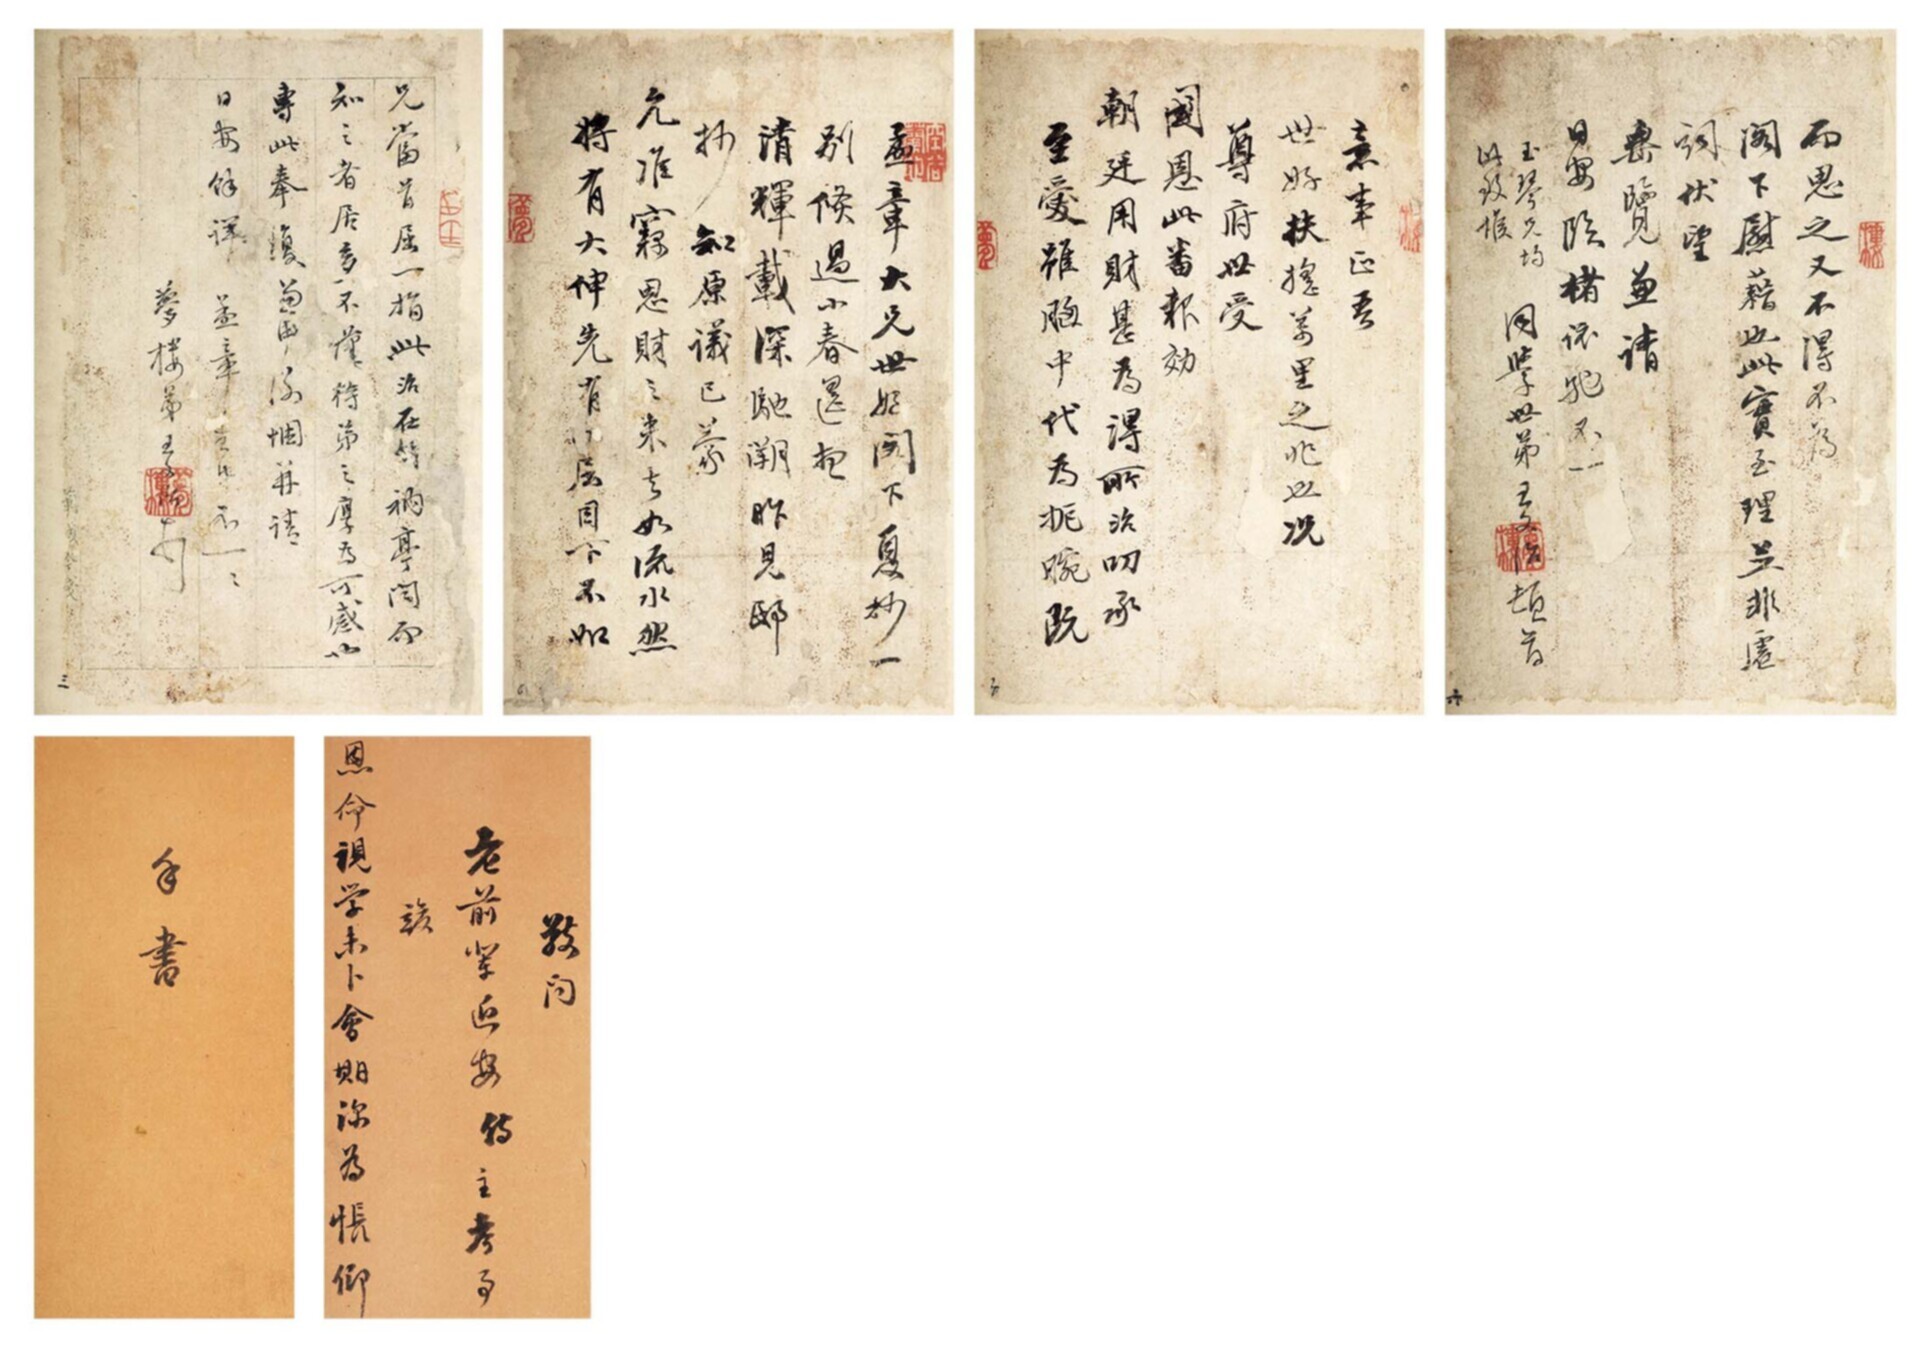 兄當首屈一指此治在
禍亭閣而
知之者居多不僅待弟之厚為可感也
專此奉復
并請
日安餘詳
孟章
不一
夢樓弟
三
孟章大兄世好閣下夏杪一
別倏過小春遥想
清輝載深馳溯昨見邸
抄知原議已蒙
允准竊思財之來去如流水然
將有大伸先有
屈目下不如
意事正吾
世好扶搖萬里之兆也况
尊府世受
國恩此番報効
朝廷用財甚為得所治叨承
至愛雖胸中代為扼腕既
而思之又不得不為
閣下慰藉也此實至理並非虛
詞伏望
垂覽並請
日安臨楮依馳不一
玉琴兄均
此致候
同學世弟王文治頓首
六
手書
敬問
老前輩近安
主考
恩命視学未卜會期深為悵仰